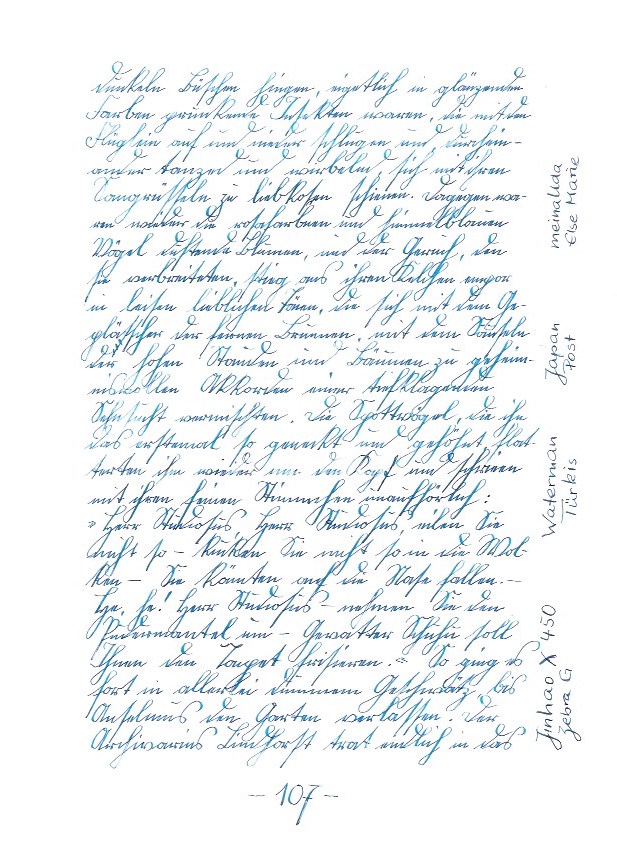 dunkeln Büschen hingen, eigentlich in glänzenden
Farben prunkende Insekten waren, die mit den
Flüglein auf und nieder schlugen und durchein-
ander tanzend und wirbelnd sich mit ihren
Saugrüsseln zu liebkosen schienen. Dagegen wa-
ren wieder die rosafarbnen und himmelblauen
Vögel duftende Blumen, und der Geruch, den
sie verbreiteten, stieg aus ihren Kelchen empor
in leisen lieblichen Tönen, die sich mit dem Ge-
plätscher der fernen Brunnen, mit dem Säuseln
der hohen Stauden und Bäumen zu geheim-
nisvollen Akkorden einer tiefklagenden
Sehnsucht vermischten. Die Spottvögel, die ihn
das erstemal so geneckt und gehöhnt flat-
terten ihm wieder um den Kopf und schrieen
mit ihren feinen Stimmchen unaufhörlich:
"Herr Studiosus, Herr Studiosus, eilen Sie
nicht so – kucken Sie nicht so in die Wol-
ken – Sie könnten auf die Nase fallen. –
He, he! Herr Studiosus – nehmen Sie den
Pudermantel um – Gevatter Schuhu soll
Ihnen den Toupet frisieren." – So ging es
fort in allerlei dummem Geschwätz, bis
Anselmus den Garten verlassen. Der
Archivarius Lindhorst trat endlich in das
– 107 –
Jinhao X 450
Zebra G
Waterman
Türkis
Japan
Post
meinalida
Else Marie